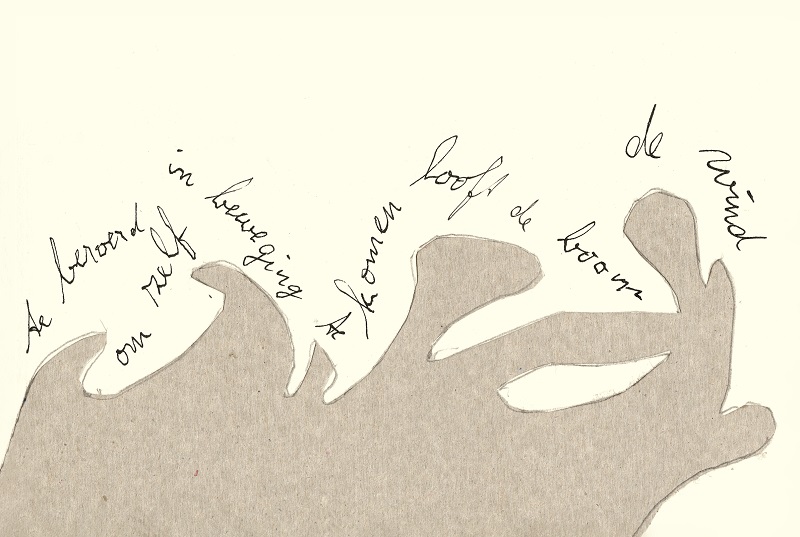 te beroerd
om zelf
in beweging
te komen
looft de boom
de wind